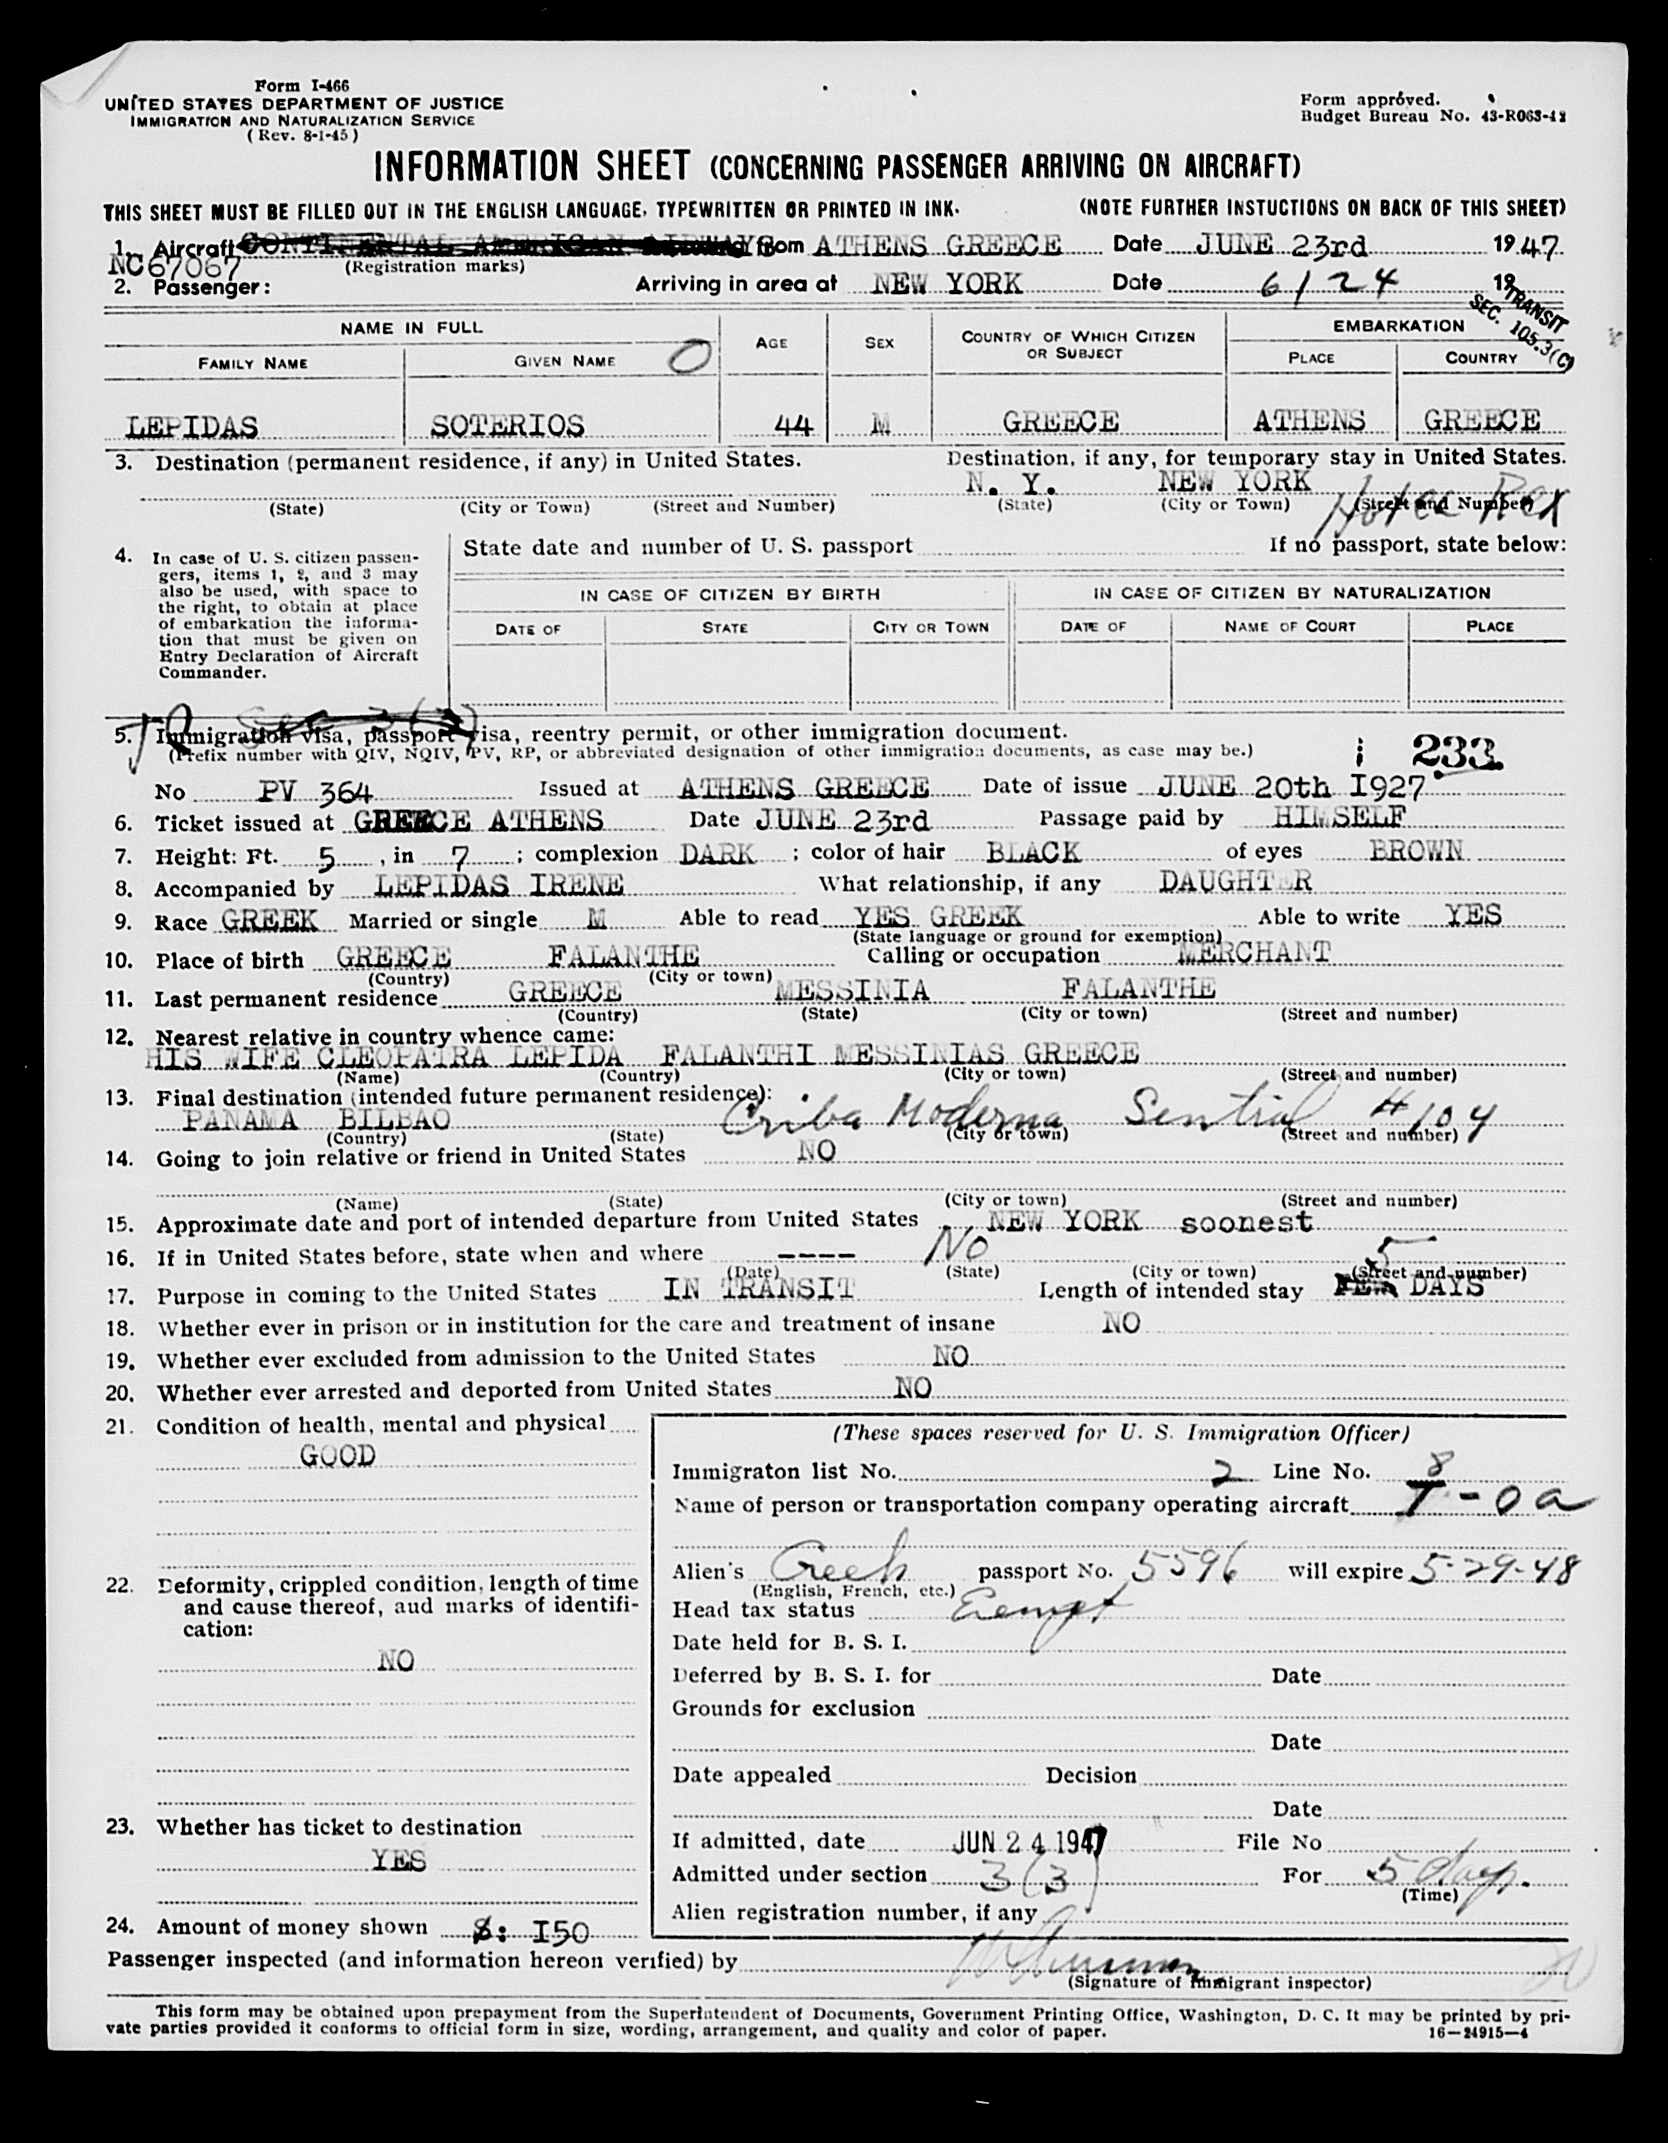 Form I-466
UNITED STATES DEPARTMENT OF JUSTICE
IMMIGRATION AND NATURALIZATION SERVICE
(Rev. 8-1-45)
Form approved.
Budget Bureau No. 43-R063-42
INFORMATION SHEET (CONCERNING PASSENGER ARRIVING ON AIRCRAFT)
THIS SHEET MUST BE FILLED OUT IN THE ENGLISH LANGUAGE, TYPEWRITTEN OR PRINTED IN INK. (NOTE FURTHER INSTUCTIONS ON BACK OF THIS SHEET)
1. Aircraft CONTINENTAL AMERICAN AIRWAYS from ATHENS GREECE Date JUNE 23rd 1947
NC67067 (Registration marks)
2. Passenger: Arriving in area at NEW YORK Date 6/24 19
TRANSIT
SEC. 105.3(C)
NAME IN FULL AGE SEX COUNTRY OF WHICH CITIZEN OR SUBJECT EMBARKATION
FAMILY NAME GIVEN NAME O PLACE COUNTRY
LEPIDAS SOTERIOS 44 M GREECE ATHENS GREECE
3. Destination (permanent residence, if any) in United States. Destination, if any, for temporary stay in United States.
N. Y. NEW YORK Hotel Rex
(State) (City or Town) (Street and Number) (State) (City or Town) (Street and Number)
4. In case of U. S. citizen passengers, items 1, 2, and 3 may also be used, with space to the right, to obtain at place of embarkation the information that must be given on Entry Declaration of Aircraft Commander.
State date and number of U. S. passport If no passport, state below:
IN CASE OF CITIZEN BY BIRTH IN CASE OF CITIZEN BY NATURALIZATION
DATE OF STATE CITY OR TOWN DATE OF NAME OF COURT PLACE
5. Immigration visa, passport visa, reentry permit, or other immigration document.
(Prefix number with QIV, NQIV, PV, RP, or abbreviated designation of other immigration documents, as case may be.) 233
No PV 364 Issued at ATHENS GREECE Date of issue JUNE 20th I927
6. Ticket issued at GREECE ATHENS Date JUNE 23rd Passage paid by HIMSELF
7. Height: Ft. 5, in 7; complexion DARK; color of hair BLACK of eyes BROWN
8. Accompanied by LEPIDAS IRENE What relationship, if any DAUGHTER
9. Race GREEK Married or single M Able to read YES GREEK Able to write YES
(State language or ground for exemption)
10. Place of birth GREECE FALANTHE Calling or occupation MERCHANT
(Country) (City or town)
11. Last permanent residence GREECE MESSINIA FALANTHE
(Country) (State) (City or town) (Street and number)
12. Nearest relative in country whence came:
HIS WIFE CLEOPATRA LEPIDA FALANTHI MESSINIAS GREECE
(Name) (Country) (City or town) (Street and number)
13. Final destination (intended future permanent residence):
PANAMA BILBAO Criba Moderna Sentrial #104
(Country) (State) (City or town) (Street and number)
14. Going to join relative or friend in United States NO
(Name) (State) (City or town) (Street and number)
15. Approximate date and port of intended departure from United States NEW YORK soonest
16. If in United States before, state when and where ---- No
(Date) (State) (City or town) (Street and number)
17. Purpose in coming to the United States IN TRANSIT Length of intended stay 5 DAYS
18. Whether ever in prison or in institution for the care and treatment of insane NO
19. Whether ever excluded from admission to the United States NO
20. Whether ever arrested and deported from United States NO
21. Condition of health, mental and physical
GOOD
22. Deformity, crippled condition, length of time
and cause thereof, and marks of identifi-
cation:
NO
23. Whether has ticket to destination
YES
24. Amount of money shown $: I50
(These spaces reserved for U. S. Immigration Officer)
Immigraton list No. 2 Line No. 8
Name of person or transportation company operating aircraft T-oa
Alien's Greek passport No. 5596 will expire 5-29-48
(English, French, etc.)
Head tax status Exempt
Date held for B. S. I.
Deferred by B. S. I. for Date
Grounds for exclusion
Date
Date appealed Decision
Date
If admitted, date JUN 24 1947 File No
Admitted under section 3(3) For 5 days.
(Time)
Alien registration number, if any
Passenger inspected (and information hereon verified) by
(Signature of immigrant inspector)
This form may be obtained upon prepayment from the Superintendent of Documents, Government Printing Office, Washington, D. C. It may be printed by pri-
vate parties provided it conforms to official form in size, wording, arrangement, and quality and color of paper. 16—24915—4